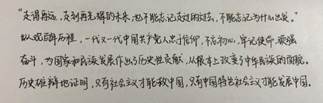 “走得再远，走到再光辉的未来，也不能忘记走过的过去，不能忘记为什么出发。”
纵观百年历程，一代又一代中国共产党人忠于信仰，不忘初心，牢记使命，顽强
奋斗，为国家和民族发展作出了历史性贡献，从根本上改变了中华民族的面貌。
历史雄辩地证明，只有社会主义才能救中国，只有中国特色社会主义才能发展中国。